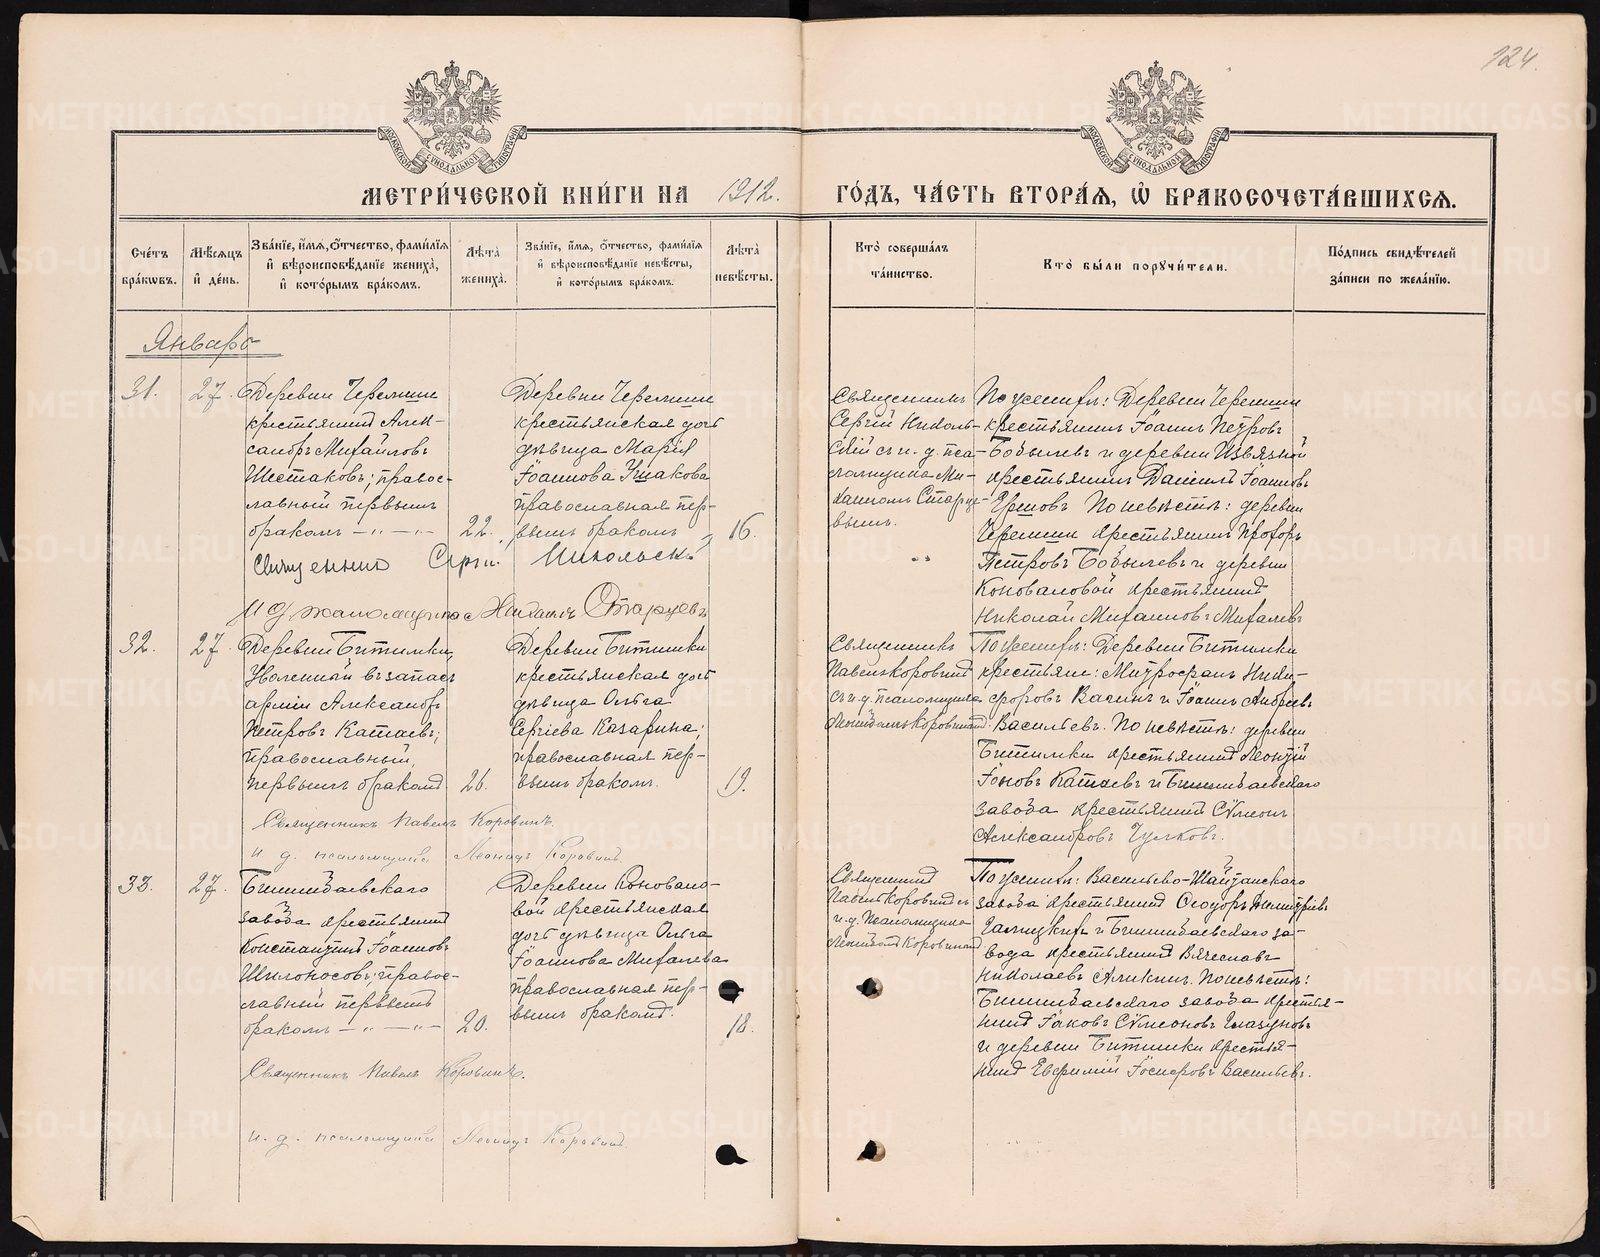 124.
МЕТРИ́ЧЕСКОЙ КНИ́ГИ НА 1912. ГО́ДЪ, ЧА́СТЬ ВТОРА́Я, Ѡ БРАКОСОЧЕТА́ВШИХСЯ.
Сче́тъ бра́кѡвъ.
Мѣ́сяцъ и де́нь.
Зва́нїе, и́мя, ѻ́тчество, фами́лїя и вѣроисповѣ́данїе жениха̀, и кото́рымъ бра́комъ.
Лѣта̀ жениха̀.
Зва́нїе, и́мя, ѻ́тчество, фами́лїя и вѣроисповѣ́данїе невѣ́сты, и кото́рымъ бра́комъ.
Лѣта̀ невѣ́сты.
Кто̀ соверша́лъ та́инство.
Кто̀ бы́ли поручи́тели.
По́дпись свидѣ́телей за́писи по жела́нїю.
Январь
31.
27.
Деревни Черемши
крестьянинъ Алек-
сандръ Михайловъ
Шестаковъ; правос-
лавный первымъ
бракомъ
22.
Деревни Черемши
крестьянская дочь
дѣвица Марія
Іоаннова Ушакова
православная пер-
вымъ бракомъ
16.
Священникъ
Сергій Николь-
скій съ и. д. пса-
ломщика Ми-
хаиломъ Старце-
вымъ.
По женихѣ: Деревни Черемши
крестьянинъ Іоаннъ Петровъ
Бобылевъ и деревни Извязной
крестьянинъ Даніилъ Іоанновъ
Ершовъ По невѣстѣ: деревни
Черемши крестьянинъ Прохоръ
Петровъ Бобылевъ и деревни
Коноваловой крестьянинъ
Николай Михаиловъ Михалевъ
Священникъ Сергій Никольскій
И д псаломщика Михаилъ Старцевъ
32.
27
Деревни Битимки,
Уволенный въ запасъ
арміи Александръ
Петровъ Катаевъ;
православный,
первымъ бракомъ
26.
Деревни Битимки
крестьянская дочь
дѣвица Ольга
Сергіева Казарина;
православная пер-
вымъ бракомъ.
19.
Священникъ
Павелъ Коровинъ
съ и. д. псаломщика
Леонидомъ Коровинымъ.
По женихѣ: Деревни Битимки
крестьяне: Митрофанъ Ники-
форовъ Васинъ и Іоаннъ Андреевъ
Васильевъ. По невѣстѣ: деревни
Битимки крестьянинъ Леонтій
Іоновъ Катаевъ и Билимбаевскаго
завода крестьянинъ Сѵмеонъ
Александровъ Чулковъ.
Священникъ Павелъ Коровинъ.
и. д. псаломщика Леонидъ Коровинъ.
33.
27.
Билимбаевскаго
завода крестьянинъ
Константинъ Іоанновъ
Шилоносовъ; правос-
лавный первымъ
бракомъ
20.
Деревни Коновало-
вой крестьянская
дочь дѣвица Ольга
Іоаннова Михалева
православная пер-
вымъ бракомъ.
18.
Священникъ
Павелъ Коровинъ съ
и. д. Псаломщика
Леонидомъ Коровинымъ
По женихѣ: Васильево-Шайтанскаго
завода крестьянинъ Ѳеодоръ Димитріевъ
Галицкихъ и Билимбаевскаго за-
вода крестьянинъ Вячеславъ
Николаевъ Аликинъ. По невѣстѣ:
Билимбаевскаго завода крестья-
нинъ Іаковъ Сѵмеоновъ Глазуновъ
и деревни Битимки крестья-
нинъ Евфимій Іосифовъ Васильевъ.
Священникъ Павелъ Коровинъ.
и. д. псаломщика Леонидъ Коровинъ